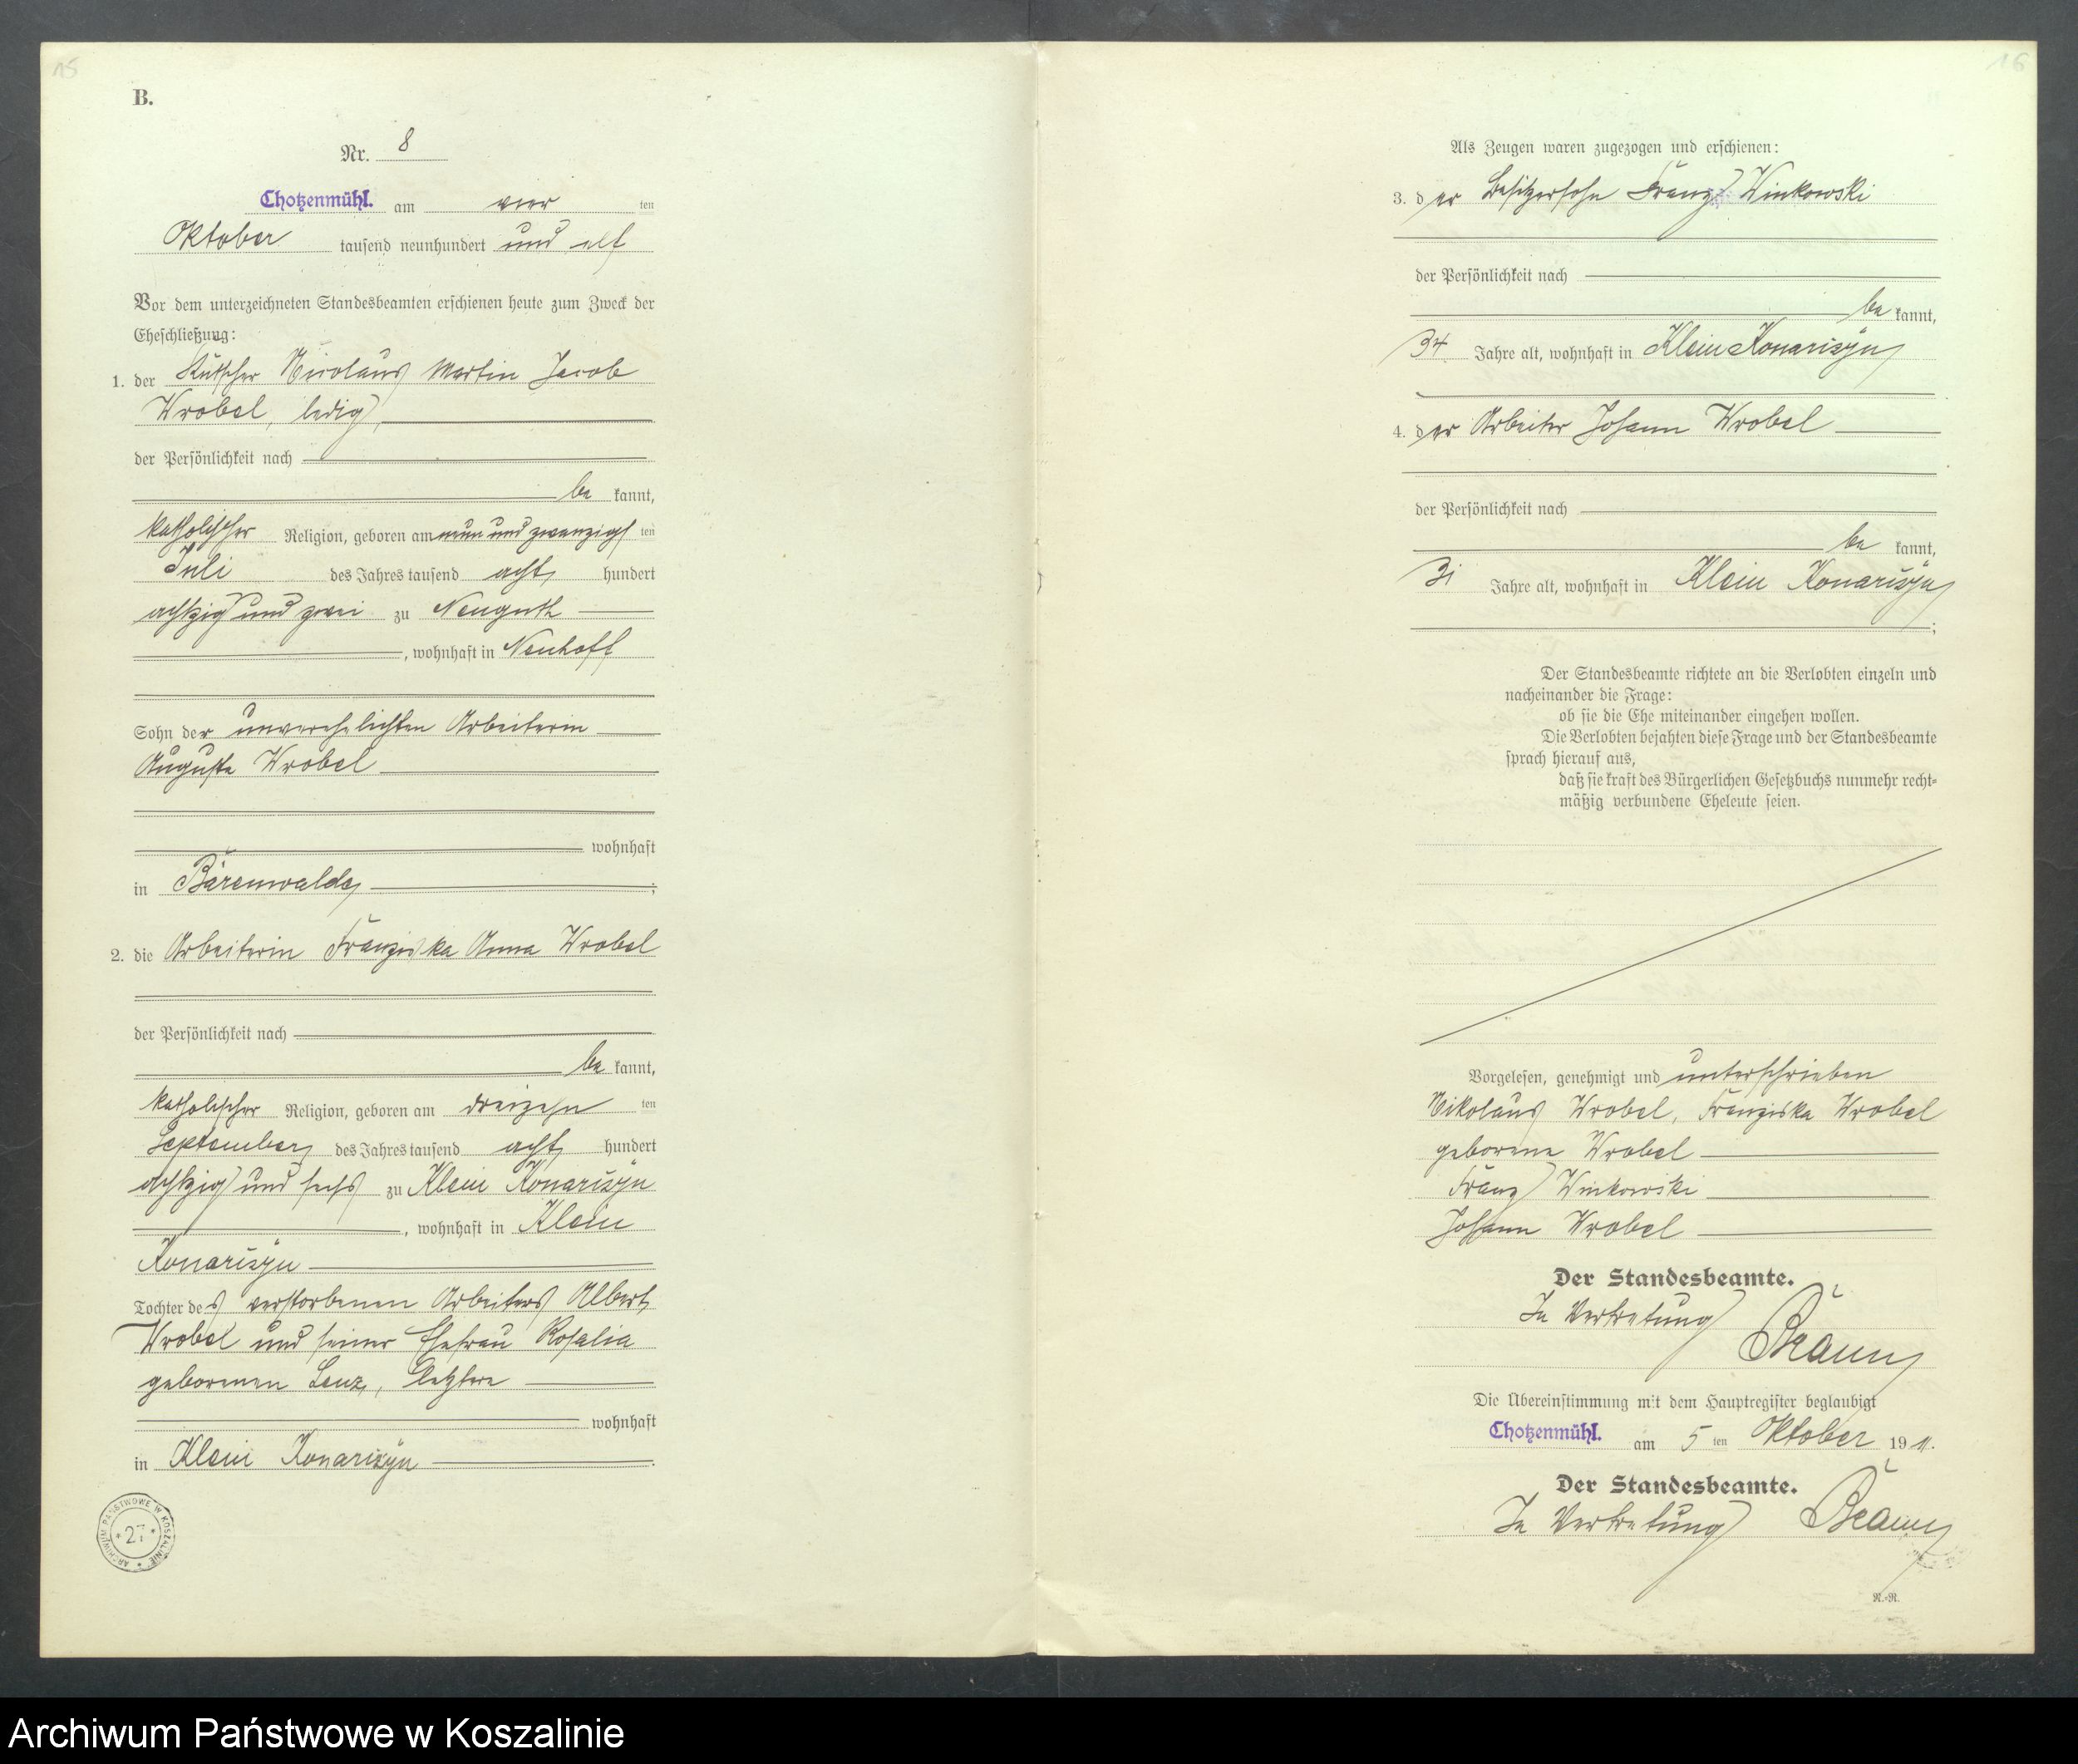 15
B.
Nr. 8
Chotzenmühl. am vier ten
Oktober tausend neunhundert und elf
Vor dem unterzeichneten Standesbeamten erschienen heute zum Zweck der
Eheschließung:
1. der Kutscher Nicolaus Martin Jacob
Wrobel, ledig,
der Persönlichkeit nach
be kannt,
katholischer Religion, geboren am neun und zwanzigs ten
Juli des Jahres tausend acht hundert
achtzig und zwei zu Neuguth
, wohnhaft in Neuhoff
Sohn der unverehelichten Arbeiterin
Auguste Wrobel
wohnhaft
in Bärenwalde
;
2. die Arbeiterin Franziska Anna Wrobel
der Persönlichkeit nach
be kannt,
katholischer Religion, geboren am dreizehn ten
September des Jahres tausend acht hundert
achtzig und sechs zu Klein Konarszyn
, wohnhaft in Klein
Konarszyn
Tochter des verstorbenen Arbeiters Albert
Wrobel und seiner Ehefrau Rosalia
geborenen Lenz, letztere
wohnhaft
in Klein Konarszyn .
ARCHIWUM PAŃSTWOWE W KOSZALINIE
* 27 *
16
Als Zeugen waren zugezogen und erschienen:
3. der Besitzersohn Franz Winkowski
der Persönlichkeit nach
be kannt,
34 Jahre alt, wohnhaft in Klein Konarszyn
4. der Arbeiter Johann Wrobel
der Persönlichkeit nach
be kannt,
31 Jahre alt, wohnhaft in Klein Konarszyn
;
Der Standesbeamte richtete an die Verlobten einzeln und
nacheinander die Frage:
ob sie die Ehe miteinander eingehen wollen.
Die Verlobten bejahten diese Frage und der Standesbeamte
sprach hierauf aus,
daß sie kraft des Bürgerlichen Gesetzbuchs nunmehr recht-
mäßig verbundene Eheleute seien.
Vorgelesen, genehmigt und unterschrieben
Nikolaus Wrobel, Franziska Wrobel
geborene Wrobel
Franz Winkowski
Johann Wrobel
Der Standesbeamte.
In Vertretung
Braun
Die Übereinstimmung mit dem Hauptregister beglaubigt
Chotzenmühl. am 5 ten Oktober 19 11.
Der Standesbeamte.
In Vertretung Braun
R.-R.
Archiwum Państwowe w Koszalinie